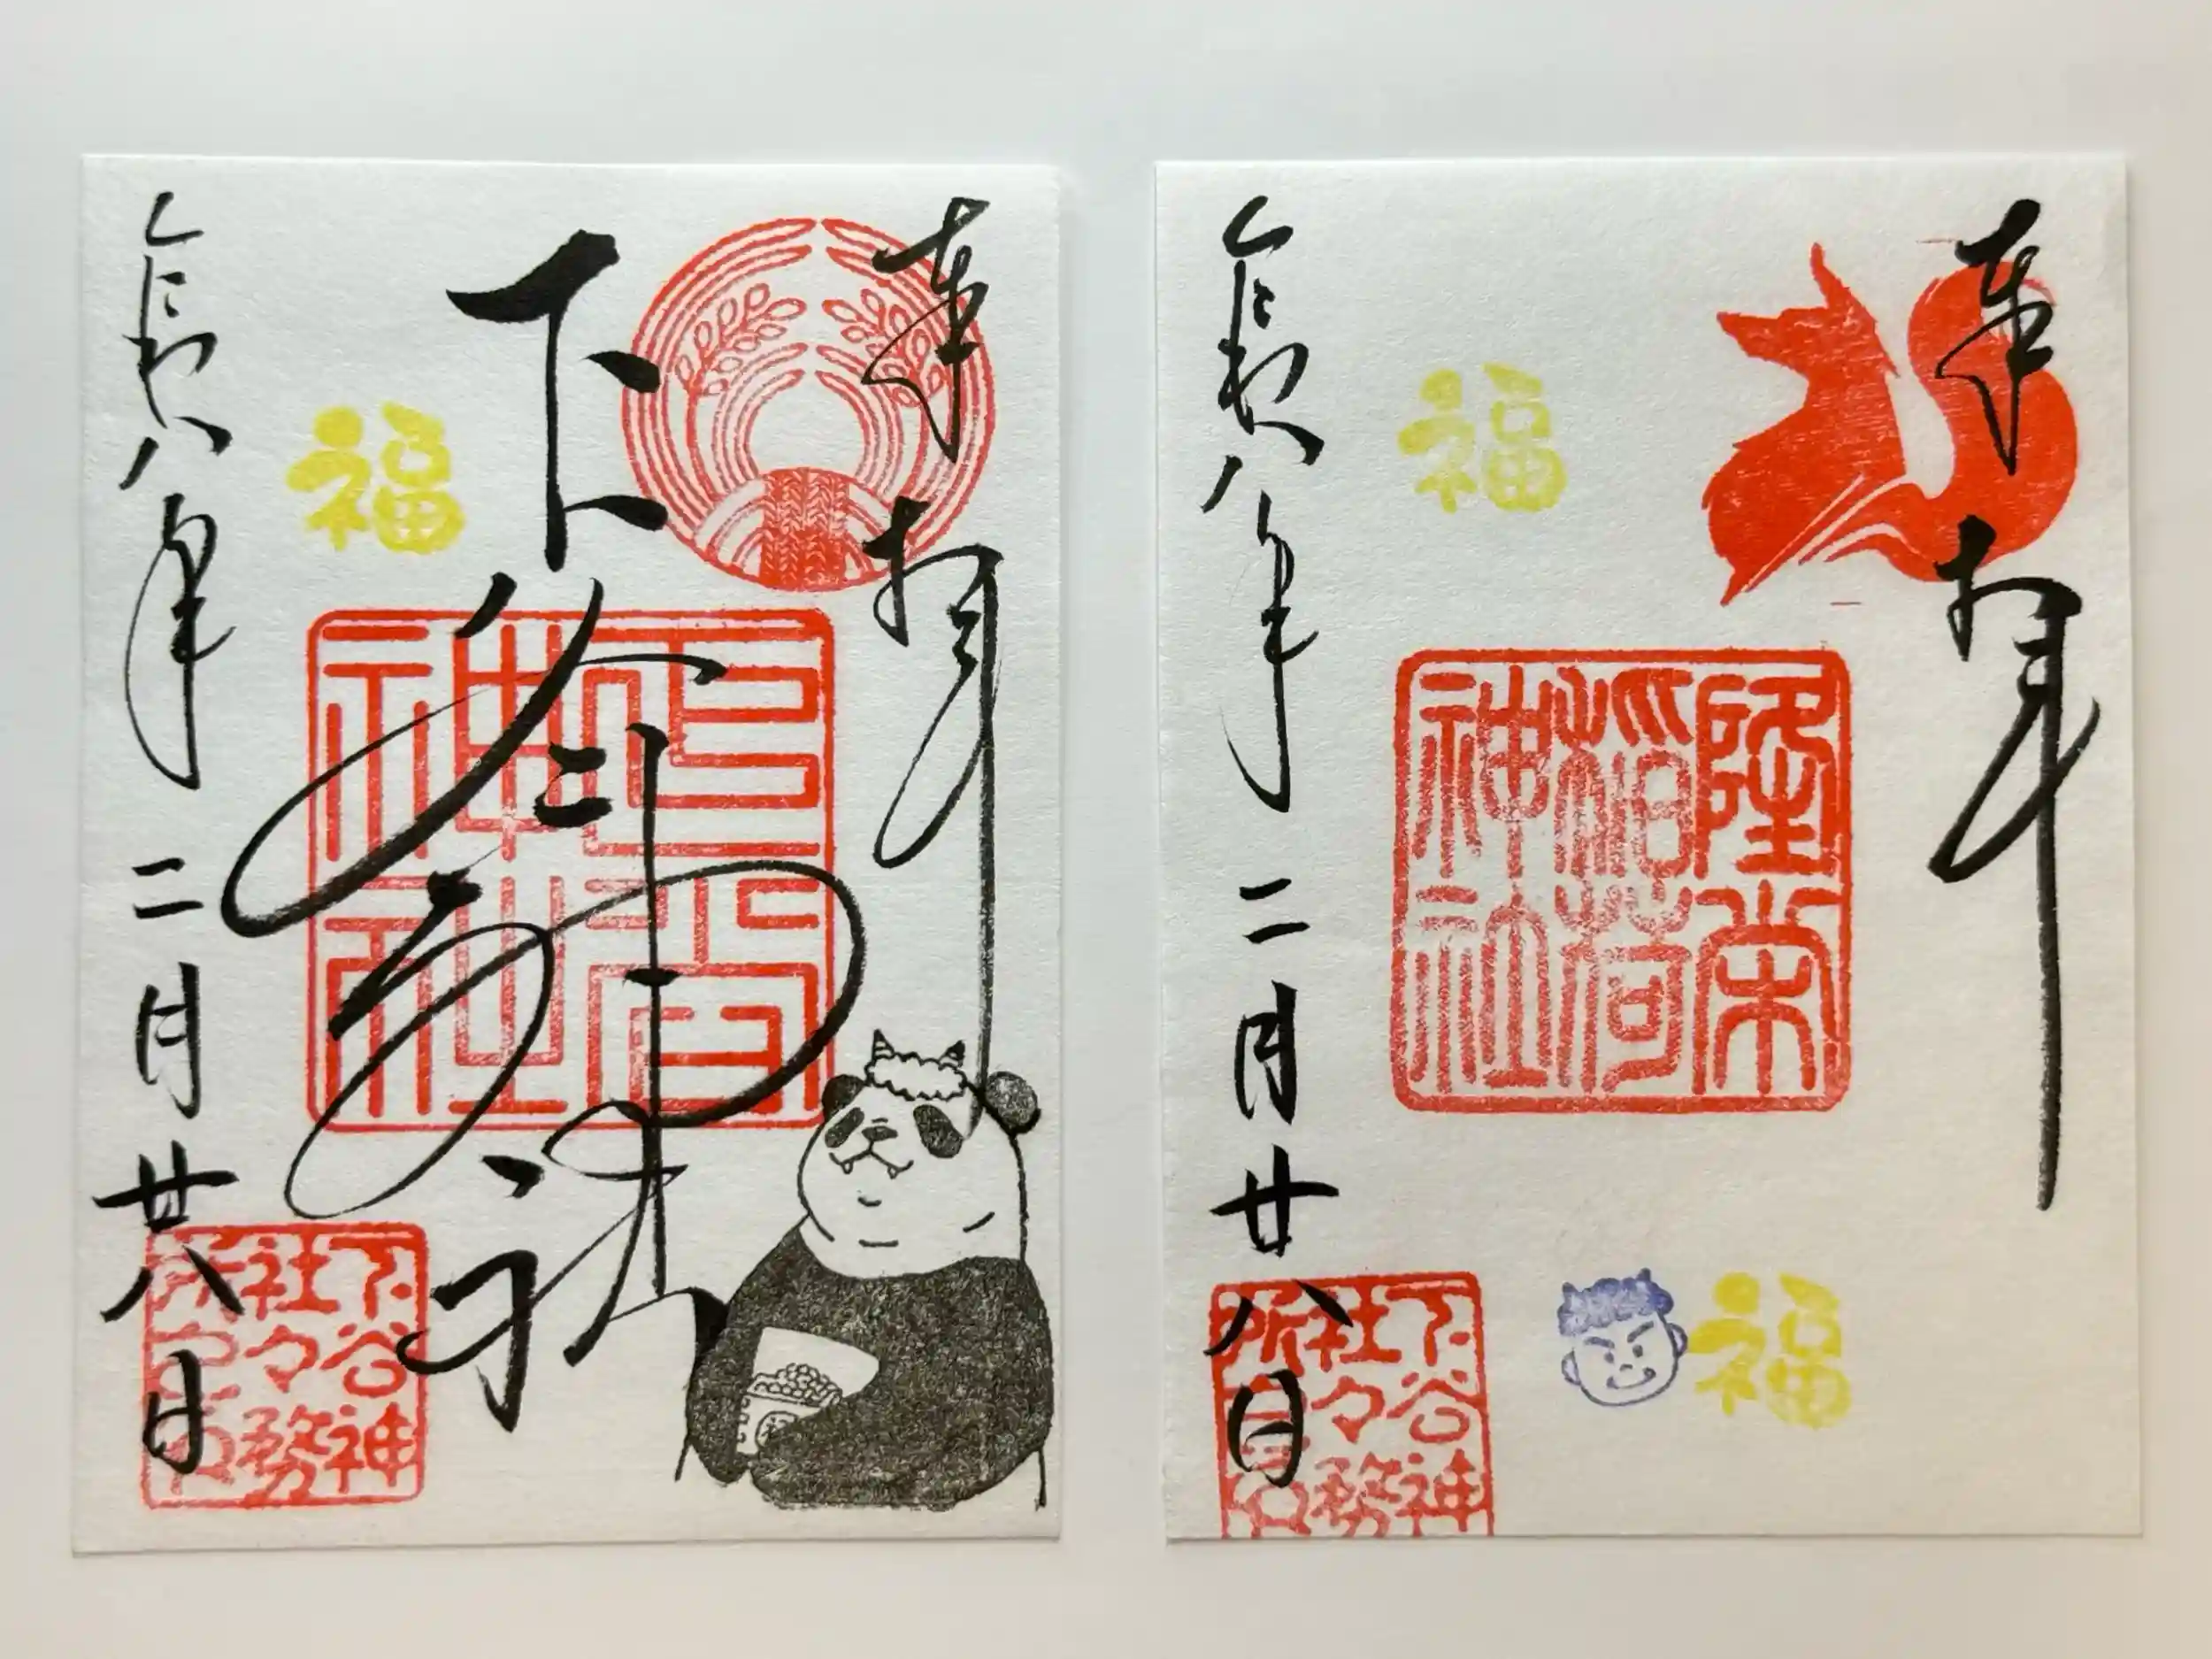 奉拝
下谷神社
下谷
神社
福
令和八年二月廿八日
下谷神
社々務
所之印
奉拝
隆栄
稲荷
神社
福
福
令和八年二月廿八日
下谷神
社々務
所之印